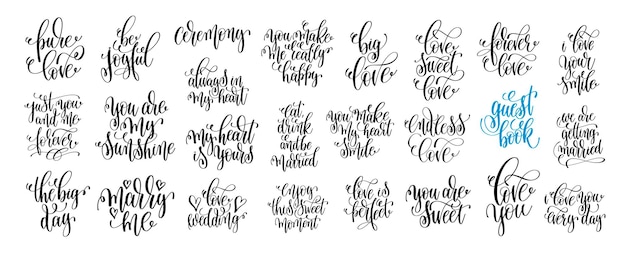 pure
love
be
joyful
ceremony
you make
me really
happy
big
love
love
sweet
love
forever
love
i love
your
smile
just you
and me
forever
you are
my
sunshine
always in
my heart
my heart
is yours
eat
drink
and be
married
you make
my heart
smile
endless
love
guest
book
we are
getting
married
the big
day
marry
me
love
wedding
enjoy
this sweet
moment
love is
perfect
you are
sweet
love
you
i love you
every day